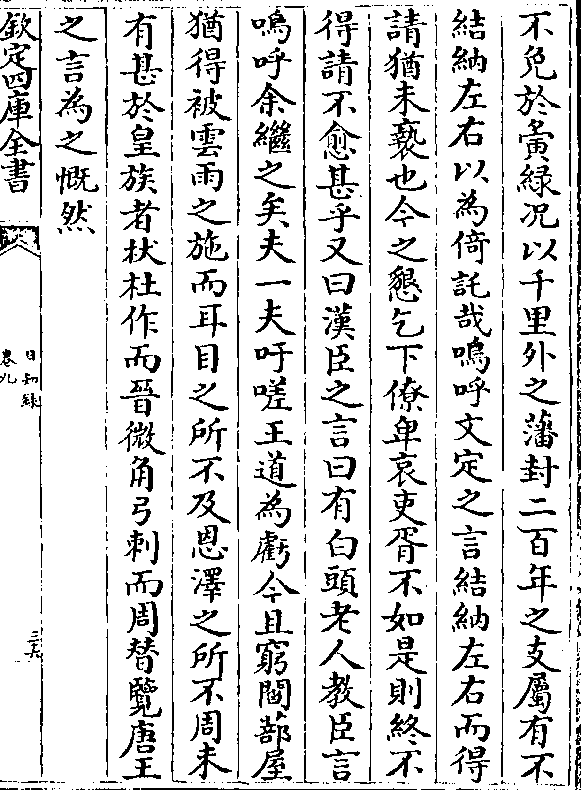 不免於夤緣况以千里外之藩封二百年之支屬有不
結納左右以為倚託哉嗚呼文定之言結納左右而得
請猶未褻也今之懇乞下僚卑哀吏胥不如是則終不
得請不愈甚乎又曰漢臣之言曰有白頭老人教臣言
嗚呼余繼之矣夫一夫吁嗟王道為虧今且窮閻蔀屋
猶得被雲雨之施而耳目之所不及恩澤之所不周未
有甚於皇族者杕杜作而晉微角弓刺而周替覽唐王
之言為之慨然
欽定四庫全書
日知錄
卷九
三六